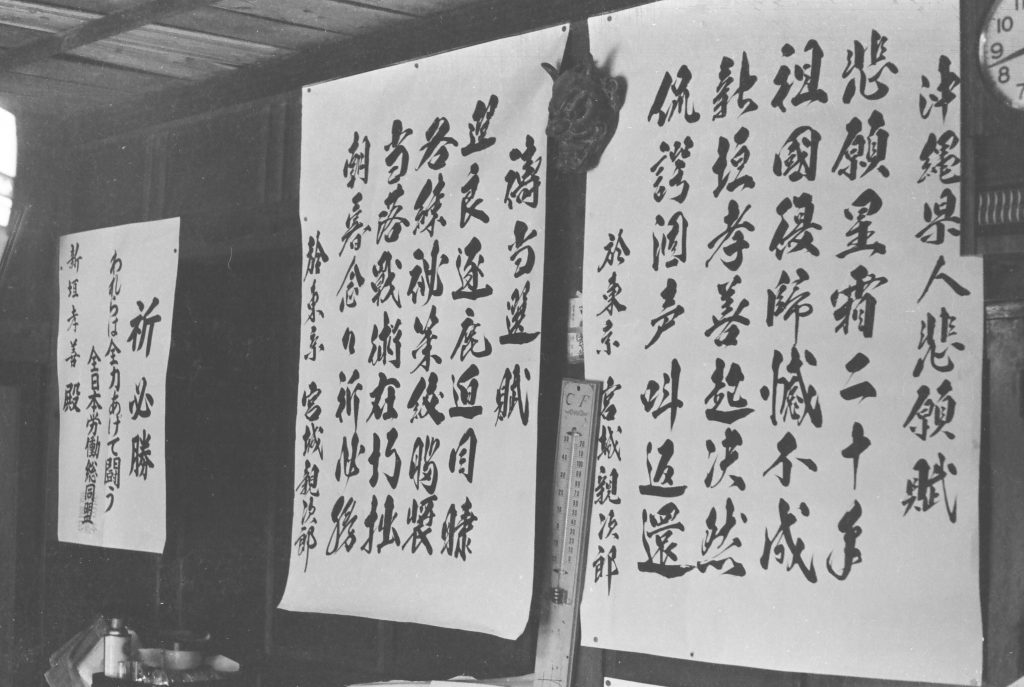 沖縄県人悲願賦
悲願星霜二十年
祖國復歸憾不成
新垣孝善起決然
侃諤涸声叫返還
於東京 宮城親次郎
禱当選賦
選良逐鹿迫目睫
各練祕策絞脳
当落戰術在巧拙
朝暮念々祈必勝
於東京 宮城親次郎
祈必勝
われらは全力あげて闘う
全日本労働総同盟
新垣孝善殿
C F
10
9
8
7